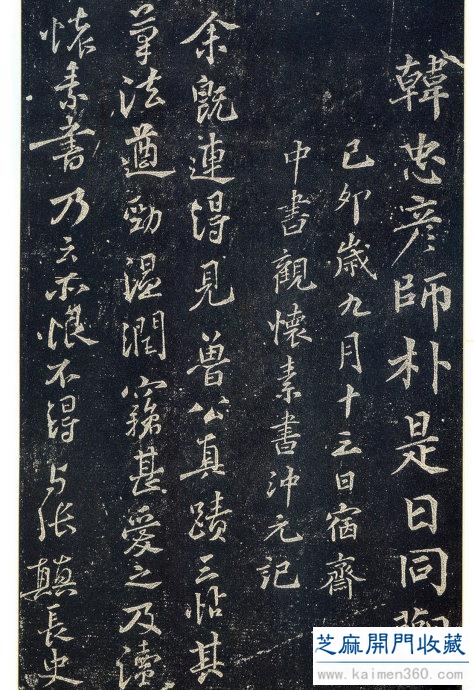 韓忠彥師朴是日同觀
己卯歲九月十三日宿齋
中書觀懷素書沖元記
余既連得見魯公真蹟三帖其
草法遒勁溫潤竊甚愛之及讀
懷素書乃云亦恨不得与張顛長史
芝麻開門收藏
www.kaimen360.com